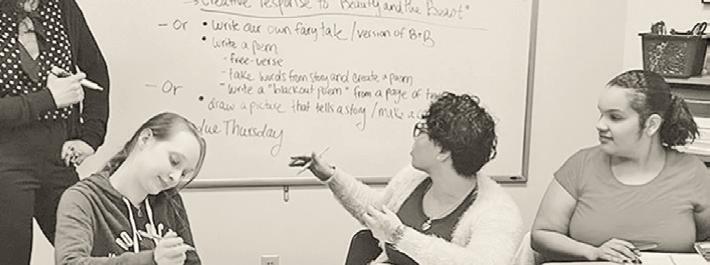 → Creative response to "Beauty and the Beast"
- Or • Write our own fairytale/version of B+B
• Write a poem
- free-verse
- take words from story and create a poem
- Write a "blackout poem" from a page of
- Or
• draw a picture that tells a story/make a
due Thursday